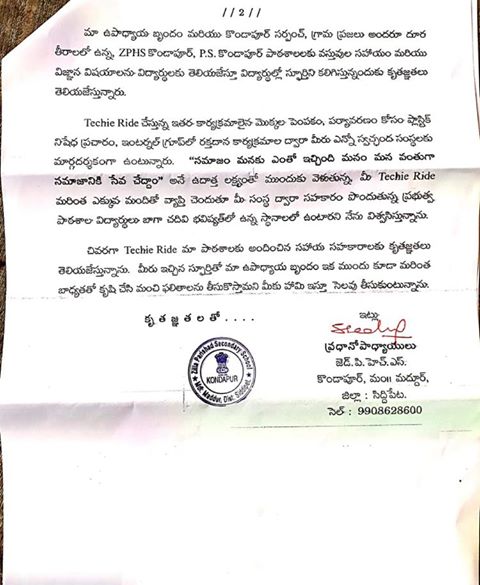 //2//
మా ఉపాధ్యాయ బృందం మరియు కొండాపూర్ సర్పంచ్, గ్రామ ప్రజలు అందరూ దూర
తీరాలలో ఉన్న, ZPHS కొండాపూర్, P.S. కొండాపూర్ పాఠశాలలకు వస్తువుల సహాయం మరియు
విజ్ఞాన విషయాలను విద్యార్థులకు తెలియజేస్తూ విద్యార్థుల్లో స్ఫూర్తిని కలిగిస్తున్నందుకు కృతజ్ఞతలు
తెలియజేస్తున్నారు.
Techie Ride చేస్తున్న ఇతర కార్యక్రమాలైన మొక్కల పెంపకం, పర్యావరణం కోసం ప్లాస్టిక్
నిషేధ ప్రచారం, ఇంటర్నల్ గ్రూప్‌లో రక్తదాన కార్యక్రమాల ద్వారా మీరు ఎన్నో స్వచ్ఛంద సంస్థలకు
మార్గదర్శకంగా ఉంటున్నారు. "సమాజం మనకు ఎంతో ఇచ్చింది మనం మన వంతుగా
సమాజానికి సేవ చేద్దాం" అనే ఉదాత్త లక్ష్యంతో ముందుకు వెళుతున్న, మీ Techie Ride
మరింత ఎక్కువ మందితో వ్యాప్తి చెందుతూ మీ సంస్థ ద్వారా సహకారం పొందుతున్న ప్రభుత్వ
పాఠశాల విద్యార్థులు బాగా చదివి భవిష్యత్‌లో ఉన్నత స్థానాలలో ఉంటారని నేను విశ్వసిస్తున్నాను.
చివరగా Techie Ride మా పాఠశాలకు అందించిన సహాయ సహకారాలకు కృతజ్ఞతలు
తెలియజేస్తున్నాను. మీరు ఇచ్చిన స్ఫూర్తితో మా ఉపాధ్యాయ బృందం ఇక ముందు కూడా మరింత
బాధ్యతతో కృషి చేసి మంచి ఫలితాలను తీసుకొస్తామని మీకు హామి ఇస్తూ సెలవు తీసుకుంటున్నాను.
కృతజ్ఞతలతో....
ఇట్లు
ప్రధానోపాధ్యాయులు
జెడ్.పి.హెచ్.ఎస్.
కొండాపూర్, మం॥ మద్దూర్,
జిల్లా : సిద్దిపేట.
సెల్ : 9908628600
Zilla Parishad Secondary School
KONDAPUR
Mdl. Maddur, Dist. Siddipet.